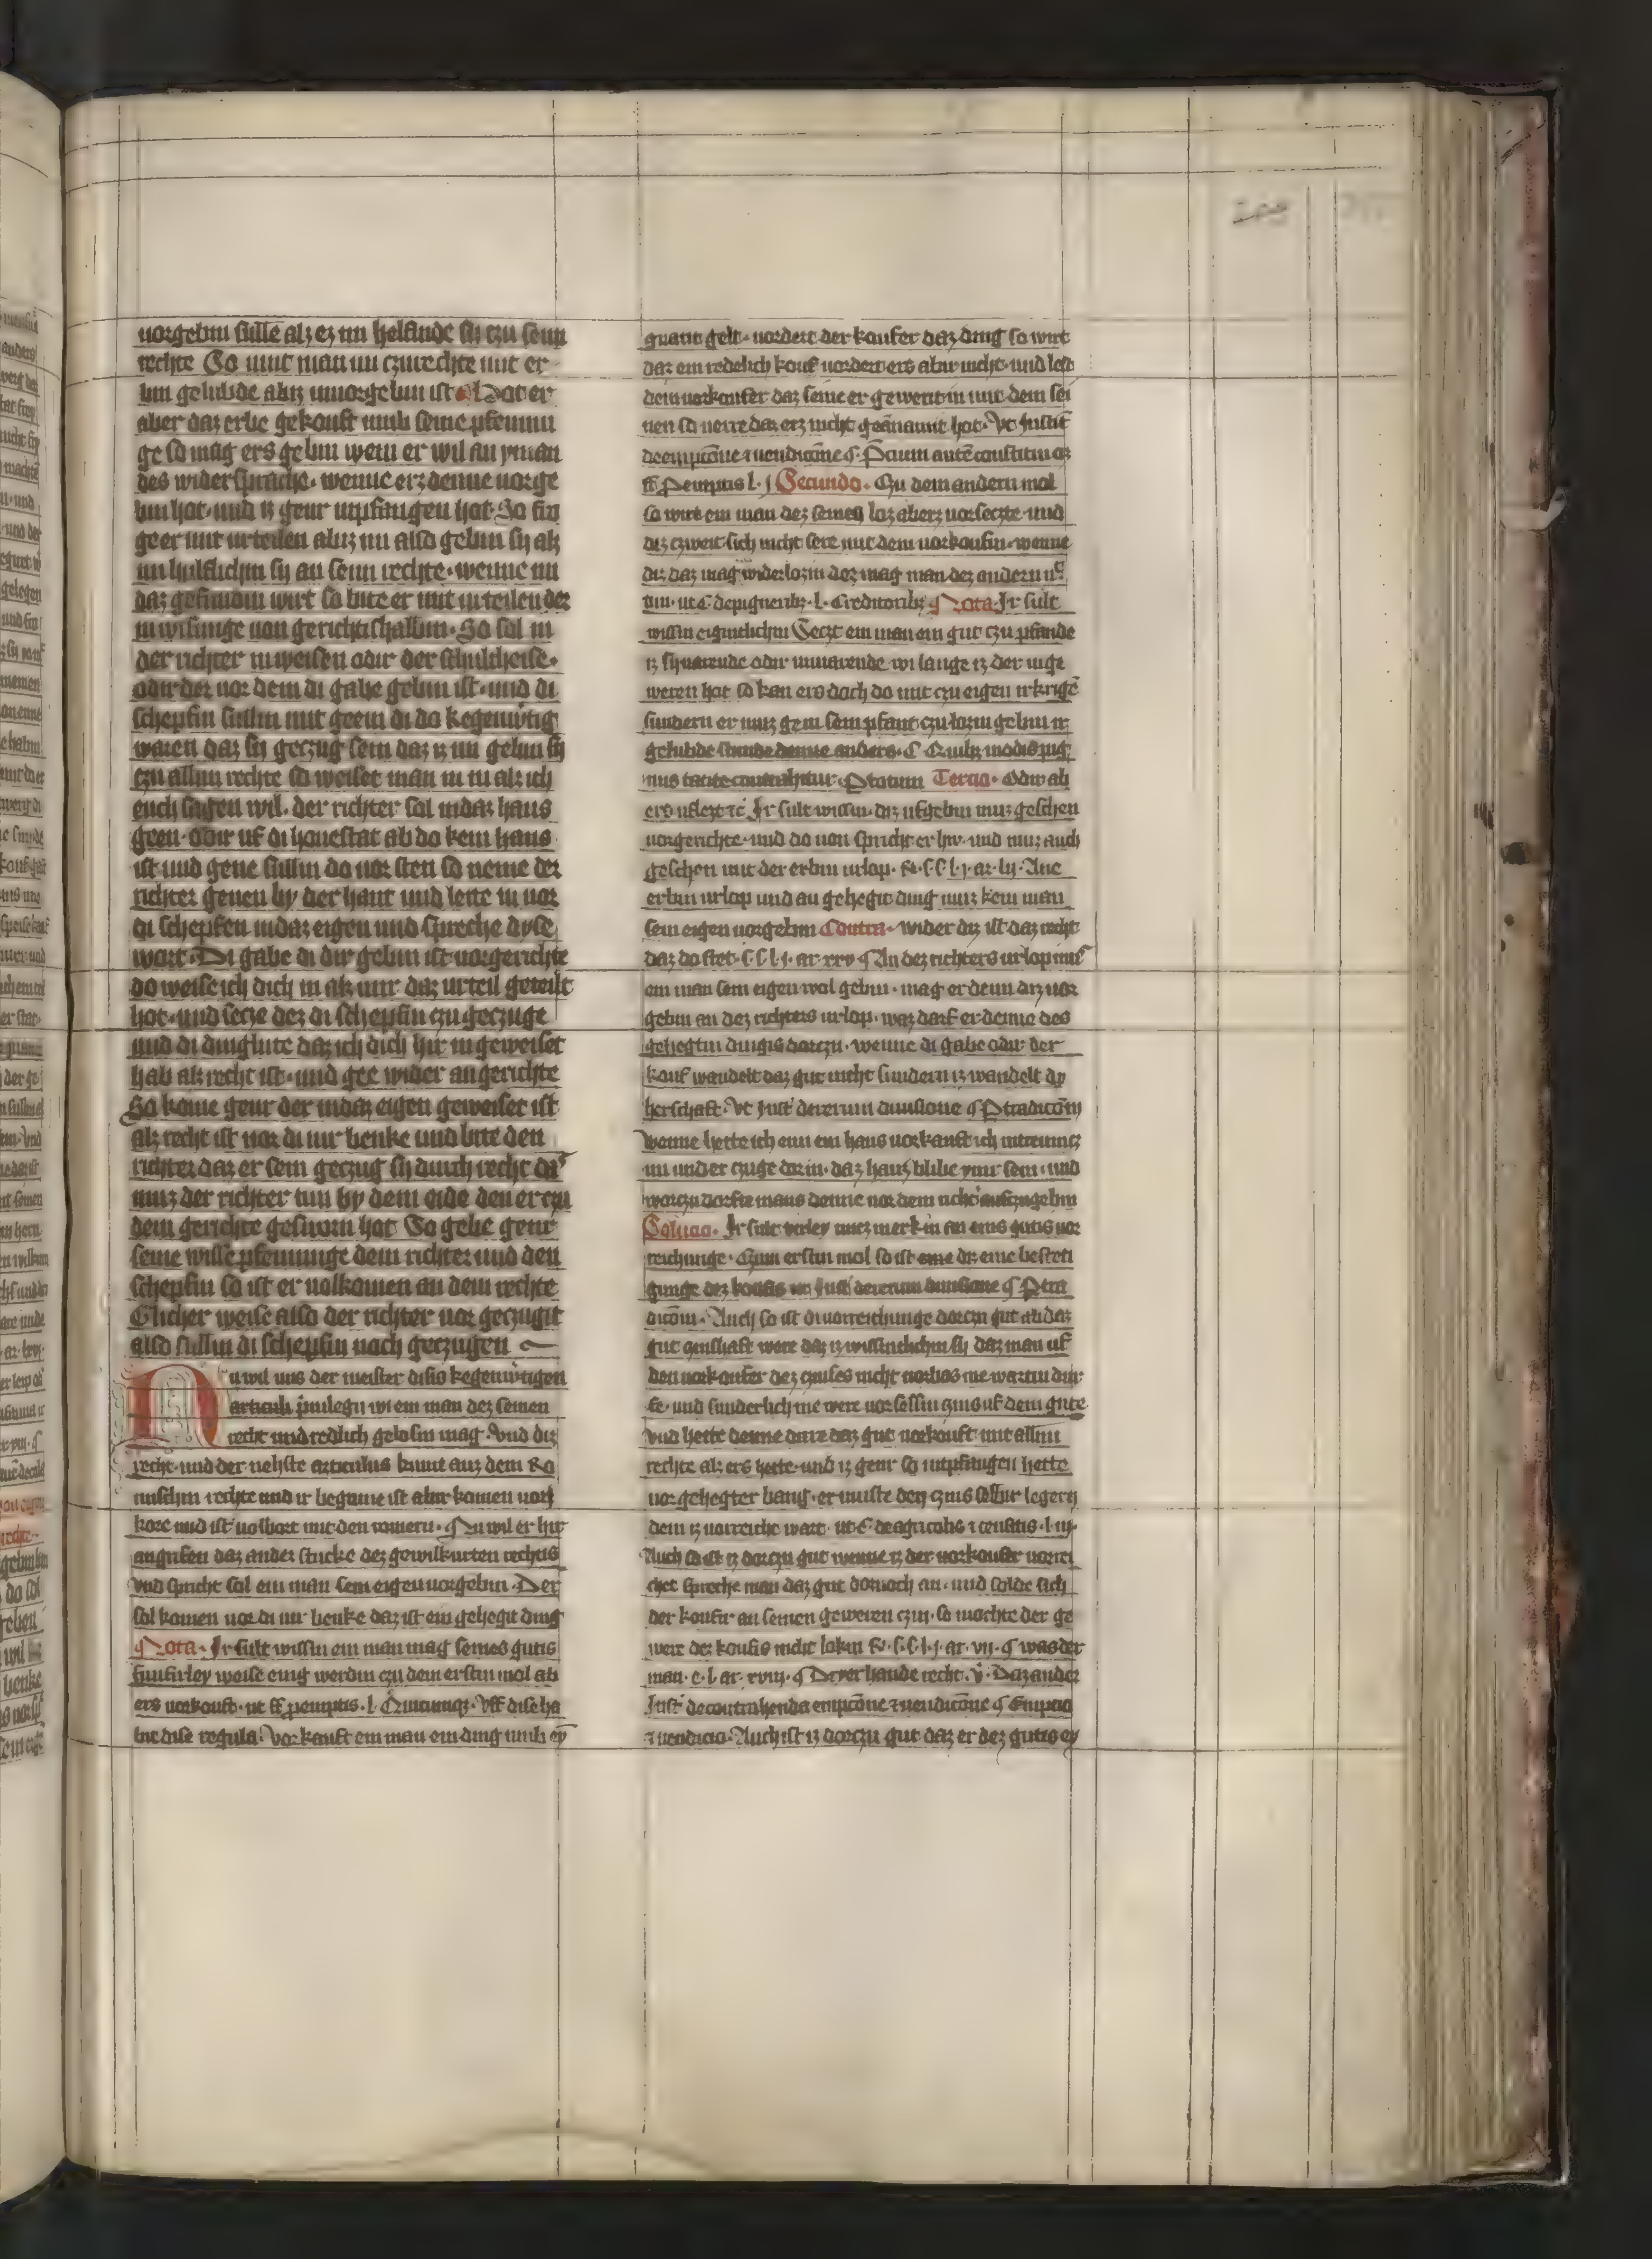 vorgebin sulle alz ez im helfinde sy czu seim
rechte So nimt man im czurechte mit er
bin gelubide abiz vnvorgebin ist Hat er
aber daz erbe gekouft umb seine pfenniu
ge so mag ers gebin wem er wil an yman
des widersprache · wenne erz denne vorge
bin hat · und iz genir inpfangen hat · So frə
ge er mit urteilen abiz im also gebin sy alz
im hulflichin sy an seim rechte · wenne im
daz gefundin wirt so bite er mit urteilen der
inwisunge von gerichtishalbin · So sal in
der richter inweisen odir der schultheise ·
odir der vor dem di gabe gebin ist · und di
schepfin sullin mit geem di do kegenwertig
waren daz sy geczug sein daz iz im gebin sy
czu allim rechte so weiset man in in alz ich
euch sagen wil · der richter sal indaz haus
geen · odir uf di houestat ab do kein haus
ist und gene sullin do vor sten so neme der
richter genen by der hant und leite in vor
di schepfen indaz eigen und spreche dyse
wort · Di gabe di dir gebin ist vorgerichte
do weise ich dich in alz mir daz urteil geteilt
hot · und secze dez di schepfin czu geczuge
und di dinglute daz ich dich hir in geweiset
hab alz recht ist · und gee wider an gerichte
So kome genir der indaz eigen geweiset ist
alz recht ist vor di vir benke und bite den
richter daz er sein geczug sy durch recht daz
muz der richter tun by dem eide den er czu
dem gerichte gesworn hot So gebe genir
seine wisse pfenninge dem richter und den
schepfin so ist er volkomen an dem rechte
Glicher weise also der richter vor geczugit
also sullin di schepfin noch geczugen
Nu wil uns der meister disis kegenwertigen
articuli pinilegii wi ein man dez seinen
recht und redlich gelosin mag · Und diz
recht · und der nehste articulus kumt auz dem Ro
mischin rechte und ir beginne ist abir komen von
kore und ist volbort mit den romern · Nu wil er hir
angrifen daz ander stucke dez gewilkurten rechtis
Und spricht sal ein man sein eigen vorgebin · Der
sal komen vor di vir benke daz ist ein gehegit ding
Nota · Ir sult wissin ein man mag seines gutis
funfirley weise enig werdin czu dem erstin mol ab
ers vorkouft · ut ff pemptis · l Quicunqz · Uff dise ha
bit dise regula · Vorkauft ein man ein ding umb ey
gnant gelt · vordert der koufer daz ding so wirt
daz ein redelich kouf vordert ers abir nicht · und lest
dem vorkoufer daz seine er gewent in mit dem sei
nen so verre daz erz nicht genannt hot · Ut Instit
deempcione et vendicione § Precium autem constitui oz
ff Pemptis l · j Secundo · Czu dem andern mol
so wirt ein man dez seinen loz ab erz vorseczte · und
diz czweit sich nicht sere mit dem vorkoufin · wenne
diz daz mag widerlozin dez mag man dez andern ny
nim · ut C depigneribz · l · Creditoribz Nota · Ir sult
wissin eigintlichin Seczt ein man ein gut czu pfande
iz sy varende odir unvarende wi lange iz der inge
weren hot so kan ers doch do mit czu eigen irkrigen
sundern er muz gem sein pfant czu lozin gebin ir
gelubide stunde denne anders · C Quibz modis pig
nus tacite contrahitur · Ptotum Tercio · Odir ab
ers uflezt etc Ir sult wissin · diz ufgebin muz geschen
vorgerichte · und do von spricht er hir · und muz auch
geschen mit der erbin urlop · R · S · S · l · j · ar · lij · Ane
erbin urlop und an gehegit ding muz kein man
sein eigen vorgebin Contra · wider diz ist daz recht
daz do stet · S S l · j · ar · xxv An dez richters urlop mus
ein man sein eigen wol gebin · mag er denn diz vor
gebin an dez richters urlop · waz darf er denne des
gehegtin dingis dorczu · wenne di gabe odir der
kouf wandelt daz gut nicht sundern iz wandelt dy
herschaft · Ut Inst dererum diuisione § Ptradicom
wenne hette ich eim ein haus vorkauft ich intrumez
im und er czuge dorin · daz haus blibe ymir sein · und
worczu dorfte mans denne vor dem richter aufczugebin
Solucio · Ir sult virley nucz merkin an eins gutis vor
reichunge · Czum erstin mol so ist eine diz eine besteti
gunge dez koufis ut Inst dererum diuisione § Ptra
dicom · Auch so ist di vorreichunge dorczu gut ab daz
gut czinshaft were daz iz wissintlichin sy daz man uf
den vorkoufer dez czinses nicht vorbas me wartin dur
fe · und sunderlich me were vorsessin czins uf dem gute
Und hette denne dirre daz gut vorkouft mit allim
rechte alz ers hette · und iz genir so intpfangen hette
vor gehegter bang · er muste den czins selbir legern
dem iz vorreicht wart · ut C deagricolis et censitis · l · iij ·
Auch so ist iz dorczu gut wenne iz der vorkoufer vorrei
chet spreche man daz gut dornoch an · und solde sich
der koufir an seinen geweren czin · so mochte der ge
were dez koufis nicht lokin R · S · S · l · j · ar · vij · § was der
man · e · l · ar · xviij · § Dryer hande recht · v · Daz ander
Inst decontrahenda empcione et vendicione § Empcio
et vendicio · Auch ist iz dorczu gut daz er dez gutis ey